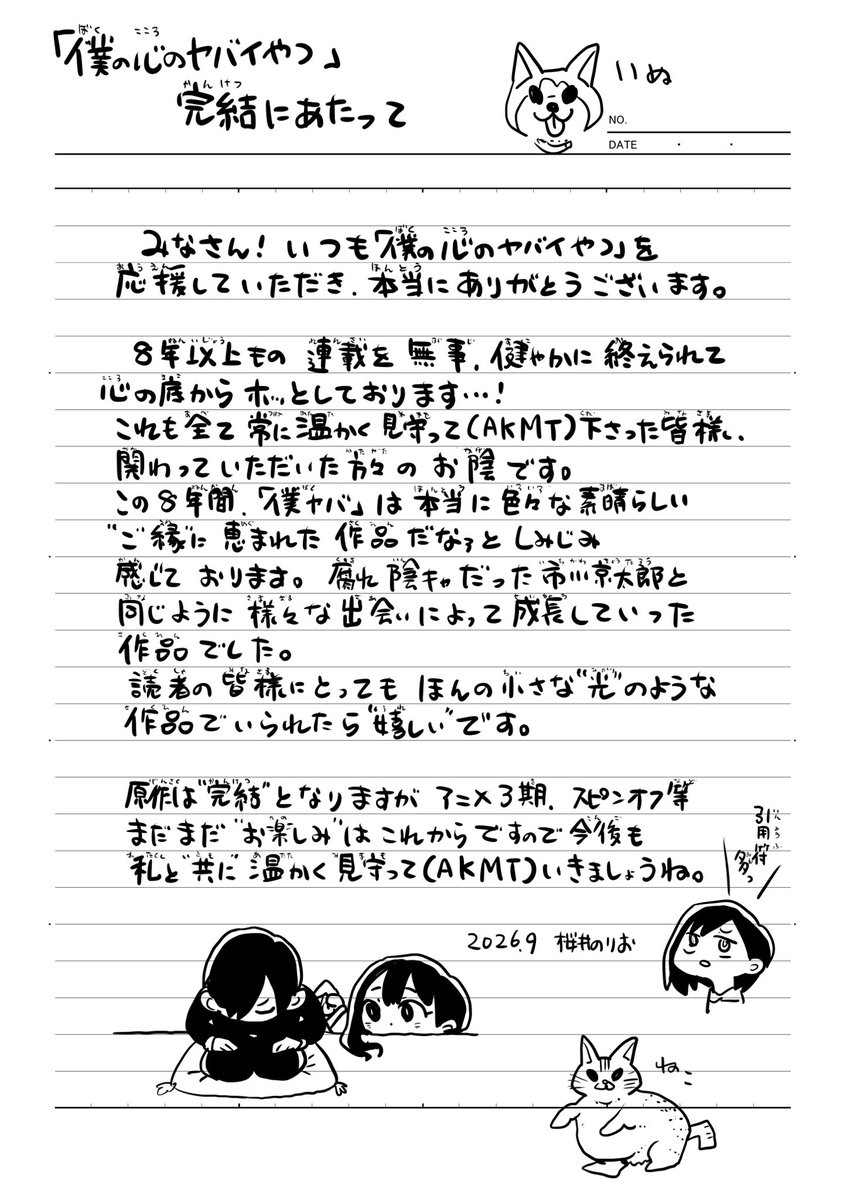 「僕の心のヤバイやつ」
完結にあたって
いぬ
NO.
DATE ・ ・
みなさん! いつも「僕の心のヤバイやつ」を
応援していただき、本当にありがとうございます。
8年以上もの 連載を 無事、健やかに 終えられて
心の底から ホッとしております…!
これも 全て 常に 温かく 見守って(AKMT)下さった 皆様、
関わって いただいた 方々の お陰です。
この8年間、「僕ヤバ」は 本当に 色々な 素晴らしい
"ご縁"に 恵まれた 作品だなぁと しみじみ
感じて おります。 腐れ陰キャだった 市川京太郎と
同じように 様々な 出会いによって 成長していった
作品でした。
読者の 皆様にとっても ほんの 小さな"光"のような
作品で いられたら"嬉しい"です。
原作は"完結"となりますが アニメ3期、スピンオフ等
まだまだ "お楽しみ"は これからですので 今後も
私と"共に" 温かく 見守って(AKMT)いきましょうね。
引用符
多っ
2026.9 桜井のりお
ねこ